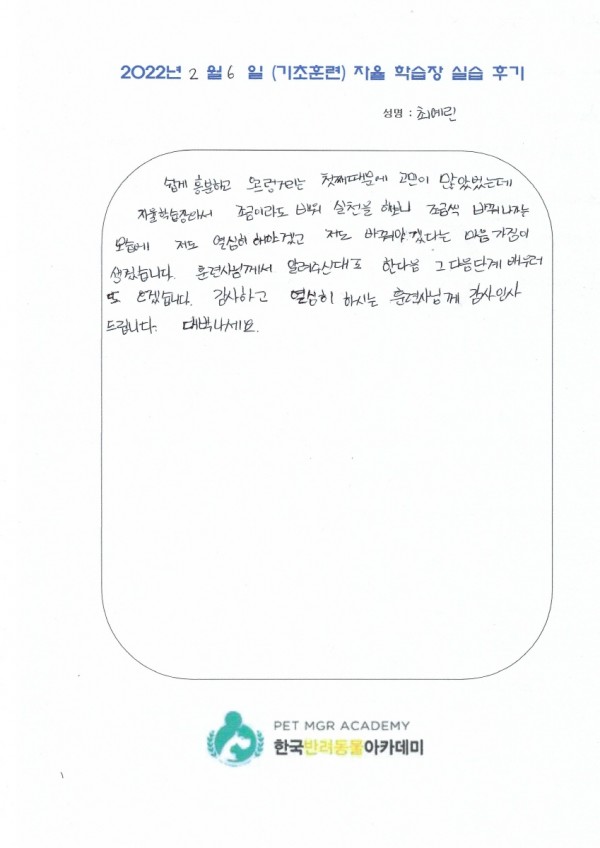 2022년 2월 6일 (기초훈련) 자율 학습장 실습 후기
성명 : 최예린
쉽게 흥분하고 으르렁거리는 첫째때문에 고민이 많았었는데
자율학습장와서 조금이라도 배워 실천을 해보니 조금씩 바뀌나가는
모습에 저도 열심히 해야겠고 저도 바뀌야겠다는 마음가짐이
생겼습니다. 훈련사님께서 알려주신대로 한다음 그 다음단계 배우러
또 오겠습니다. 감사하고 열심히 하시는 훈련사님께 감사인사
드립니다. 대박나세요.
PET MGR ACADEMY
한국반려동물아카데미